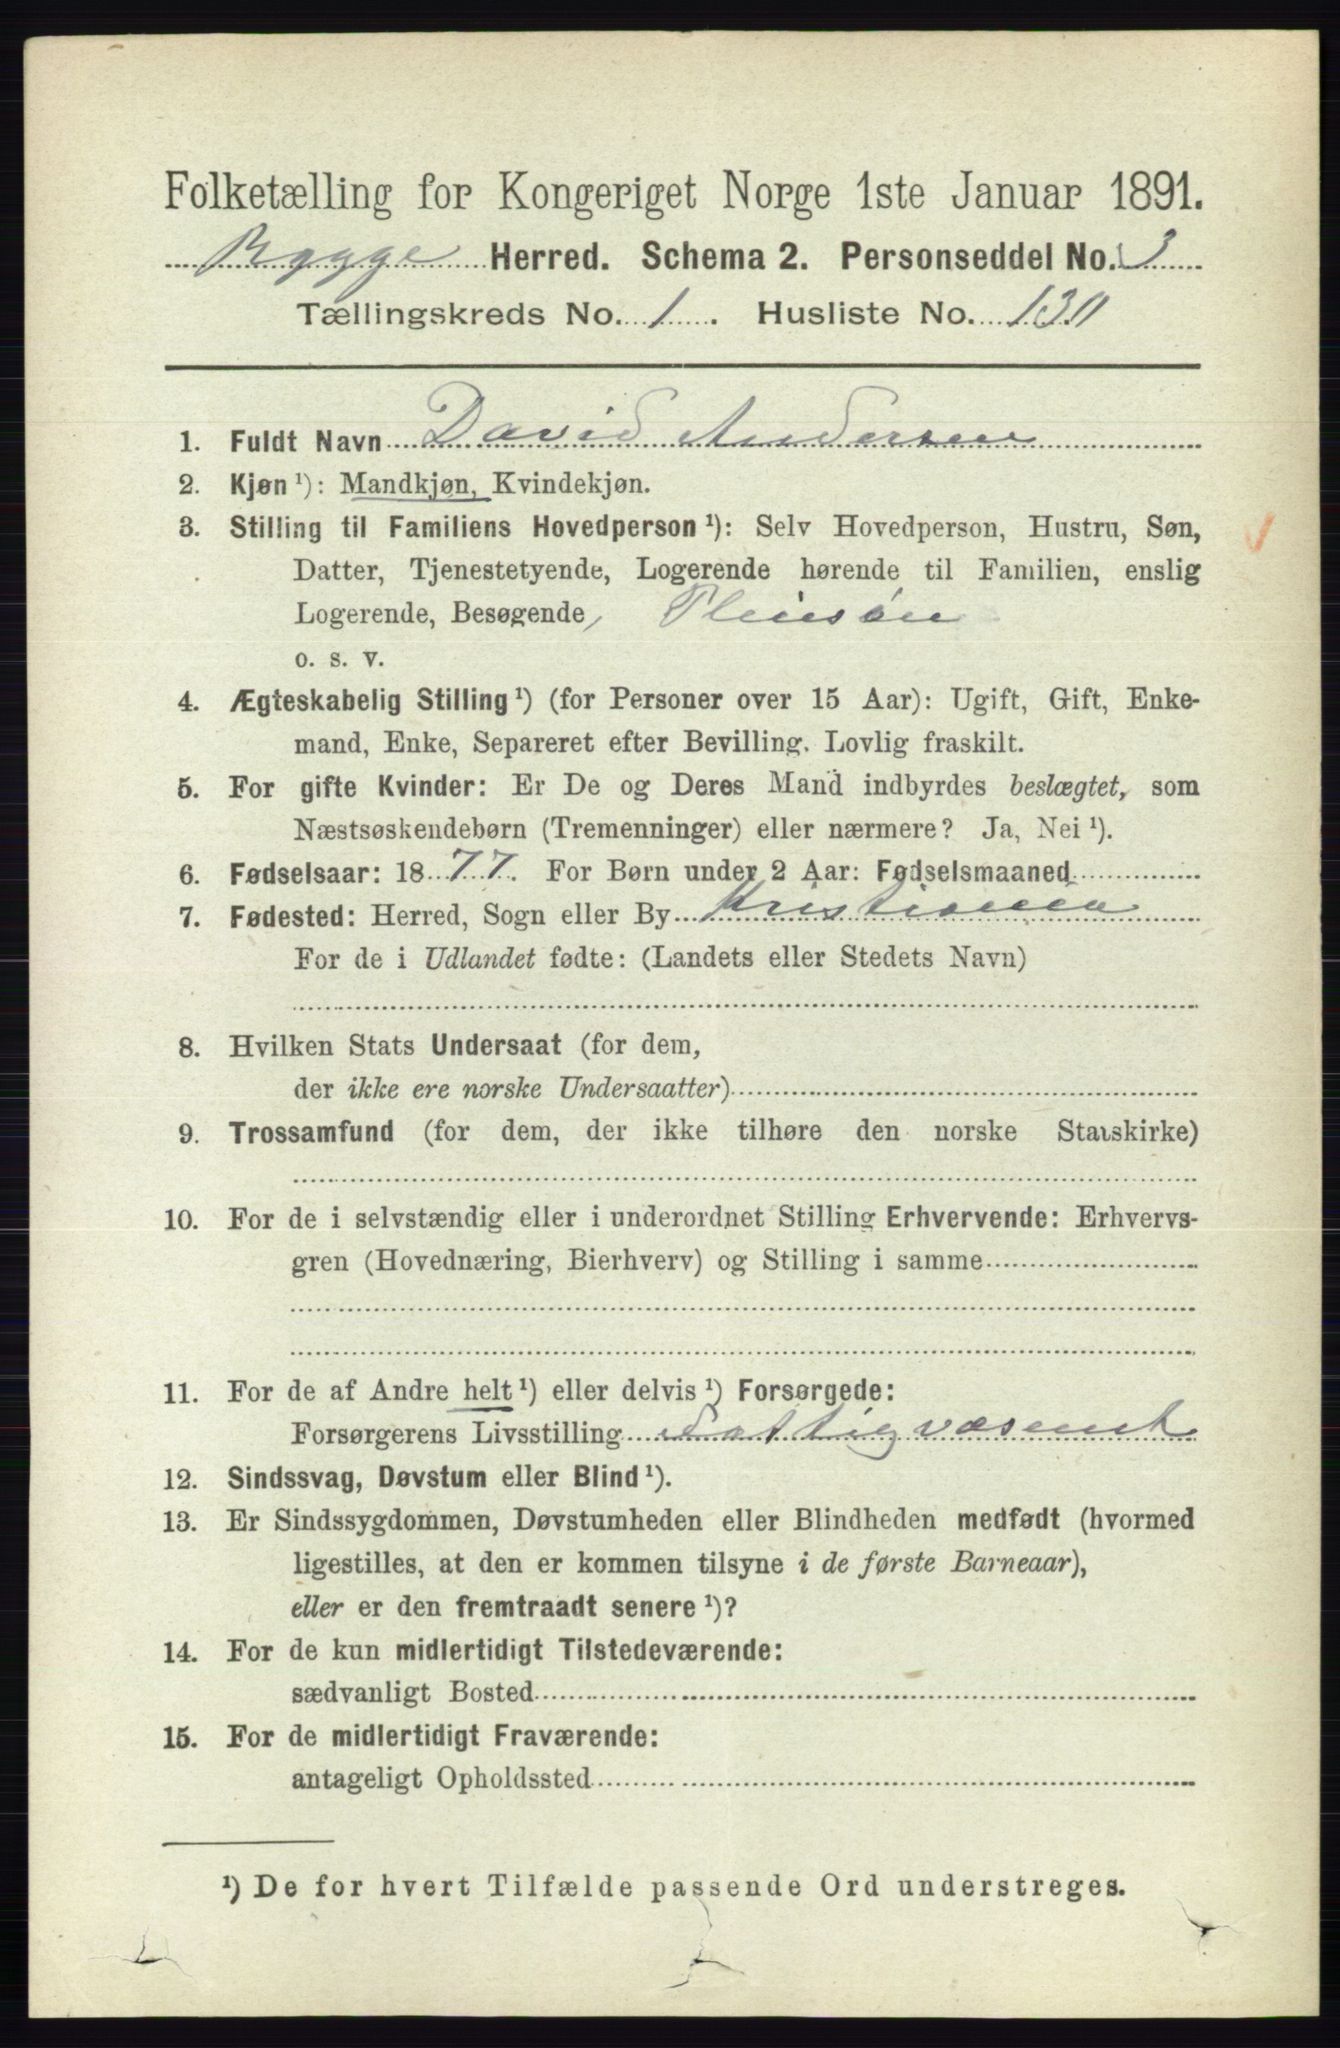 Folketælling for Kongeriget Norge 1ste Januar 1891.
Rygge Herred. Schema 2. Personseddel No. 3
Tællingskreds No. 1. Husliste No. 130
1. Fuldt Navn David Andersen
2. Kjøn ¹): Mandkjøn, Kvindekjøn.
3. Stilling til Familiens Hovedperson ¹): Selv Hovedperson, Hustru, Søn,
Datter, Tjenestetyende, Logerende hørende til Familien, enslig
Logerende, Besøgende, Pleiesøn
o. s. v.
4. Ægteskabelig Stilling ¹) (for Personer over 15 Aar): Ugift, Gift, Enke-
mand, Enke, Separeret efter Bevilling. Lovlig fraskilt.
5. For gifte Kvinder: Er De og Deres Mand indbyrdes beslægtet, som
Næstsøskendebørn (Tremenninger) eller nærmere? Ja, Nei ¹).
6. Fødselsaar: 1877. For Børn under 2 Aar: Fødselsmaaned
7. Fødested: Herred, Sogn eller By Kristiania
For de i Udlandet fødte: (Landets eller Stedets Navn)
8. Hvilken Stats Undersaat (for dem,
der ikke ere norske Undersaatter)
9. Trossamfund (for dem, der ikke tilhøre den norske Statskirke)
10. For de i selvstændig eller i underordnet Stilling Erhvervende: Erhvervs-
gren (Hovednæring, Bierhverv) og Stilling i samme
11. For de af Andre helt ¹) eller delvis ¹) Forsørgede:
Forsørgerens Livsstilling Fattigvæsenet
12. Sindssvag, Døvstum eller Blind ¹).
13. Er Sindssygdommen, Døvstumheden eller Blindheden medfødt (hvormed
ligestilles, at den er kommen tilsyne i de første Barneaar),
eller er den fremtraadt senere ¹)?
14. For de kun midlertidigt Tilstedeværende:
sædvanligt Bosted
15. For de midlertidigt Fraværende:
antageligt Opholdssted
¹) De for hvert Tilfælde passende Ord understreges.